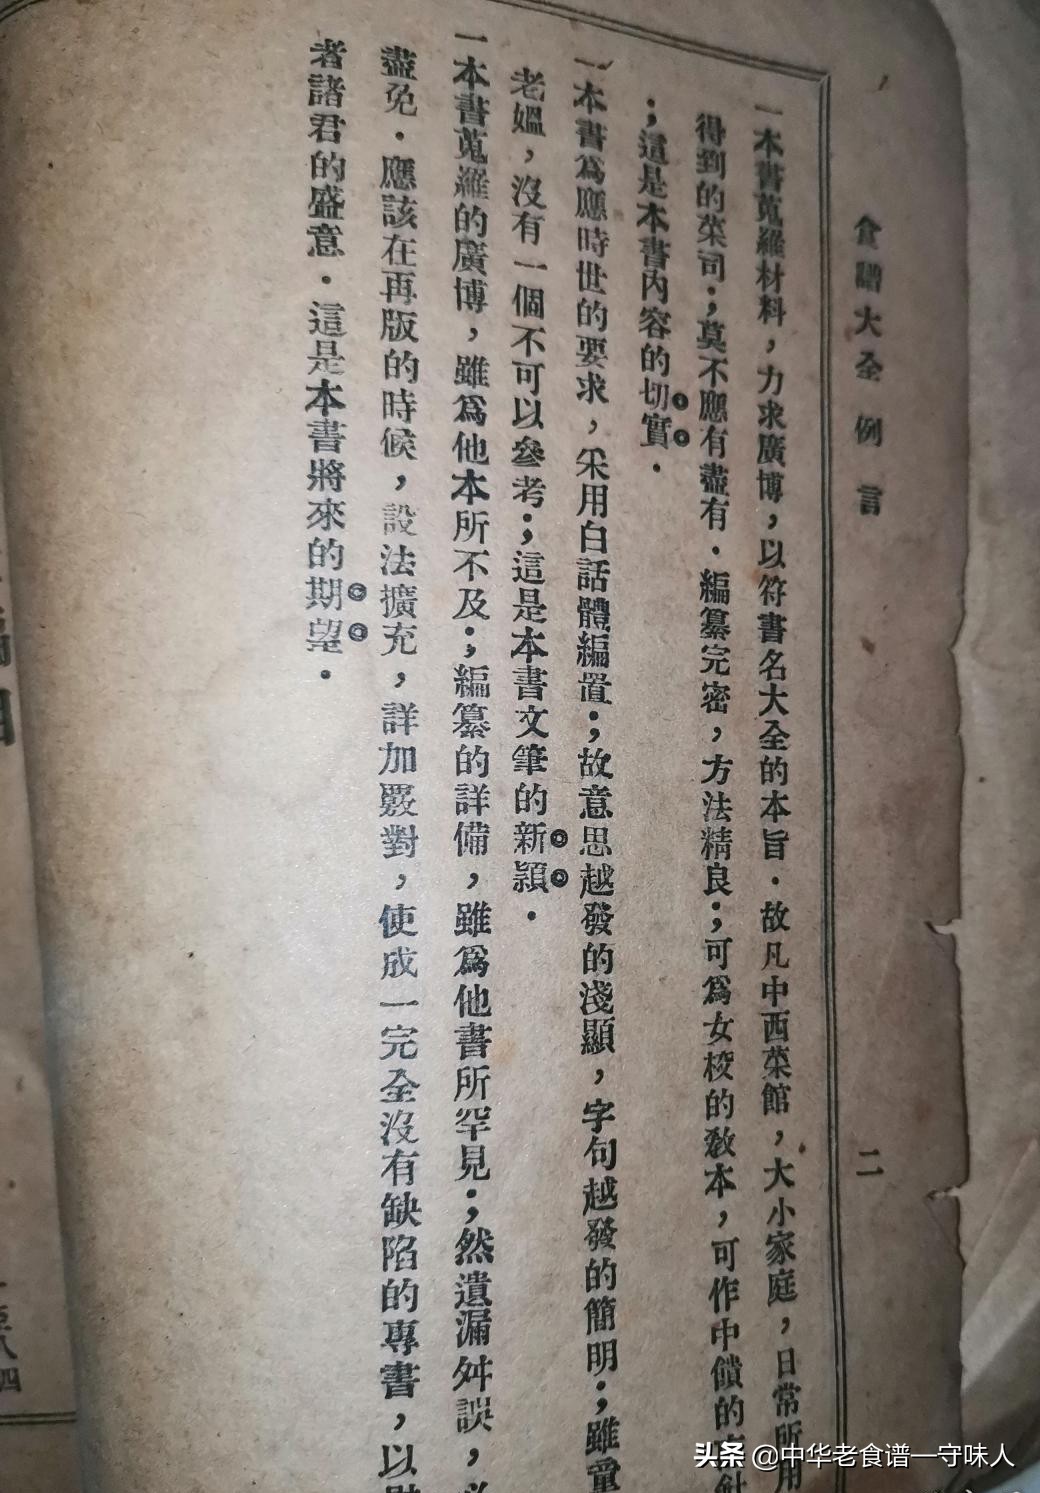 食譜大全 例言 二
一本書蒐羅材料，力求廣博，以符書名大全的本旨．故凡中西菜館，大小家庭，日常所用
得到的菜司；莫不應有盡有．編纂完密，方法精良；可爲女校的教本，可作中饋的
；這是本書內容的切實．
一本書爲應時世的要求，采用白話體編置；故意思越發的淺顯，字句越發的簡明；雖童
老媼，沒有一個不可以參考；這是本書文筆的新穎．
一本書蒐羅的廣博，雖爲他本所不及；編纂的詳備，雖爲他書所罕見；然遺漏舛誤，
盡免．應該在再版的時候，設法擴充，詳加覈對，使成一完全沒有缺陷的專書，以
者諸君的盛意．這是本書將來的期望．
頭条 @中华老食谱—守味人